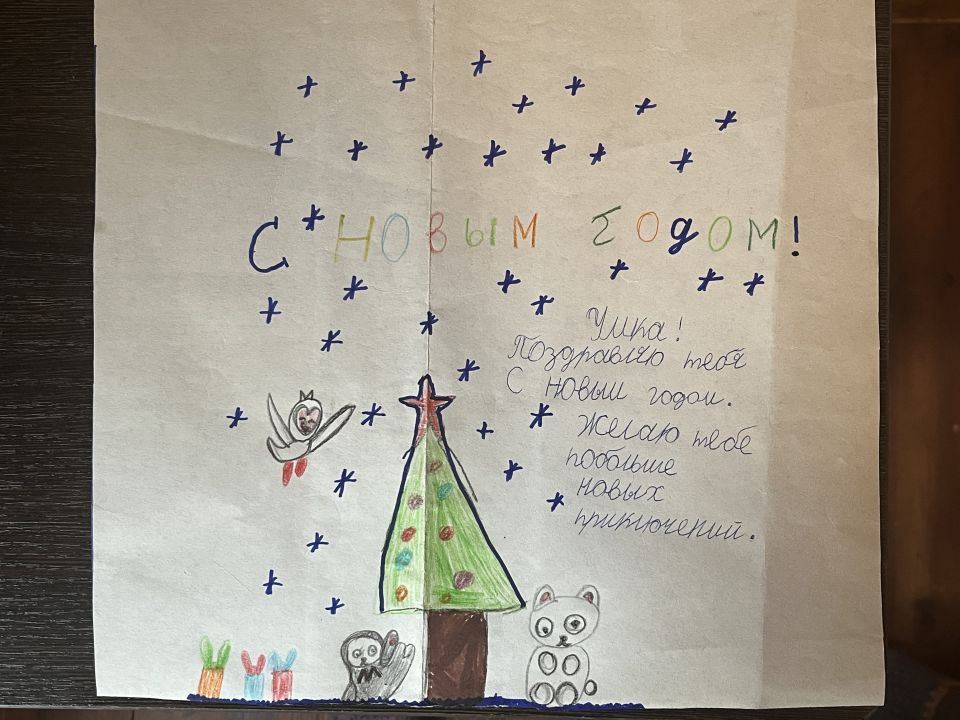 С новым годом!
Умка!
Поздравляю тебя
С новым годом.
Желаю тебе
побольше
новых
приключений.